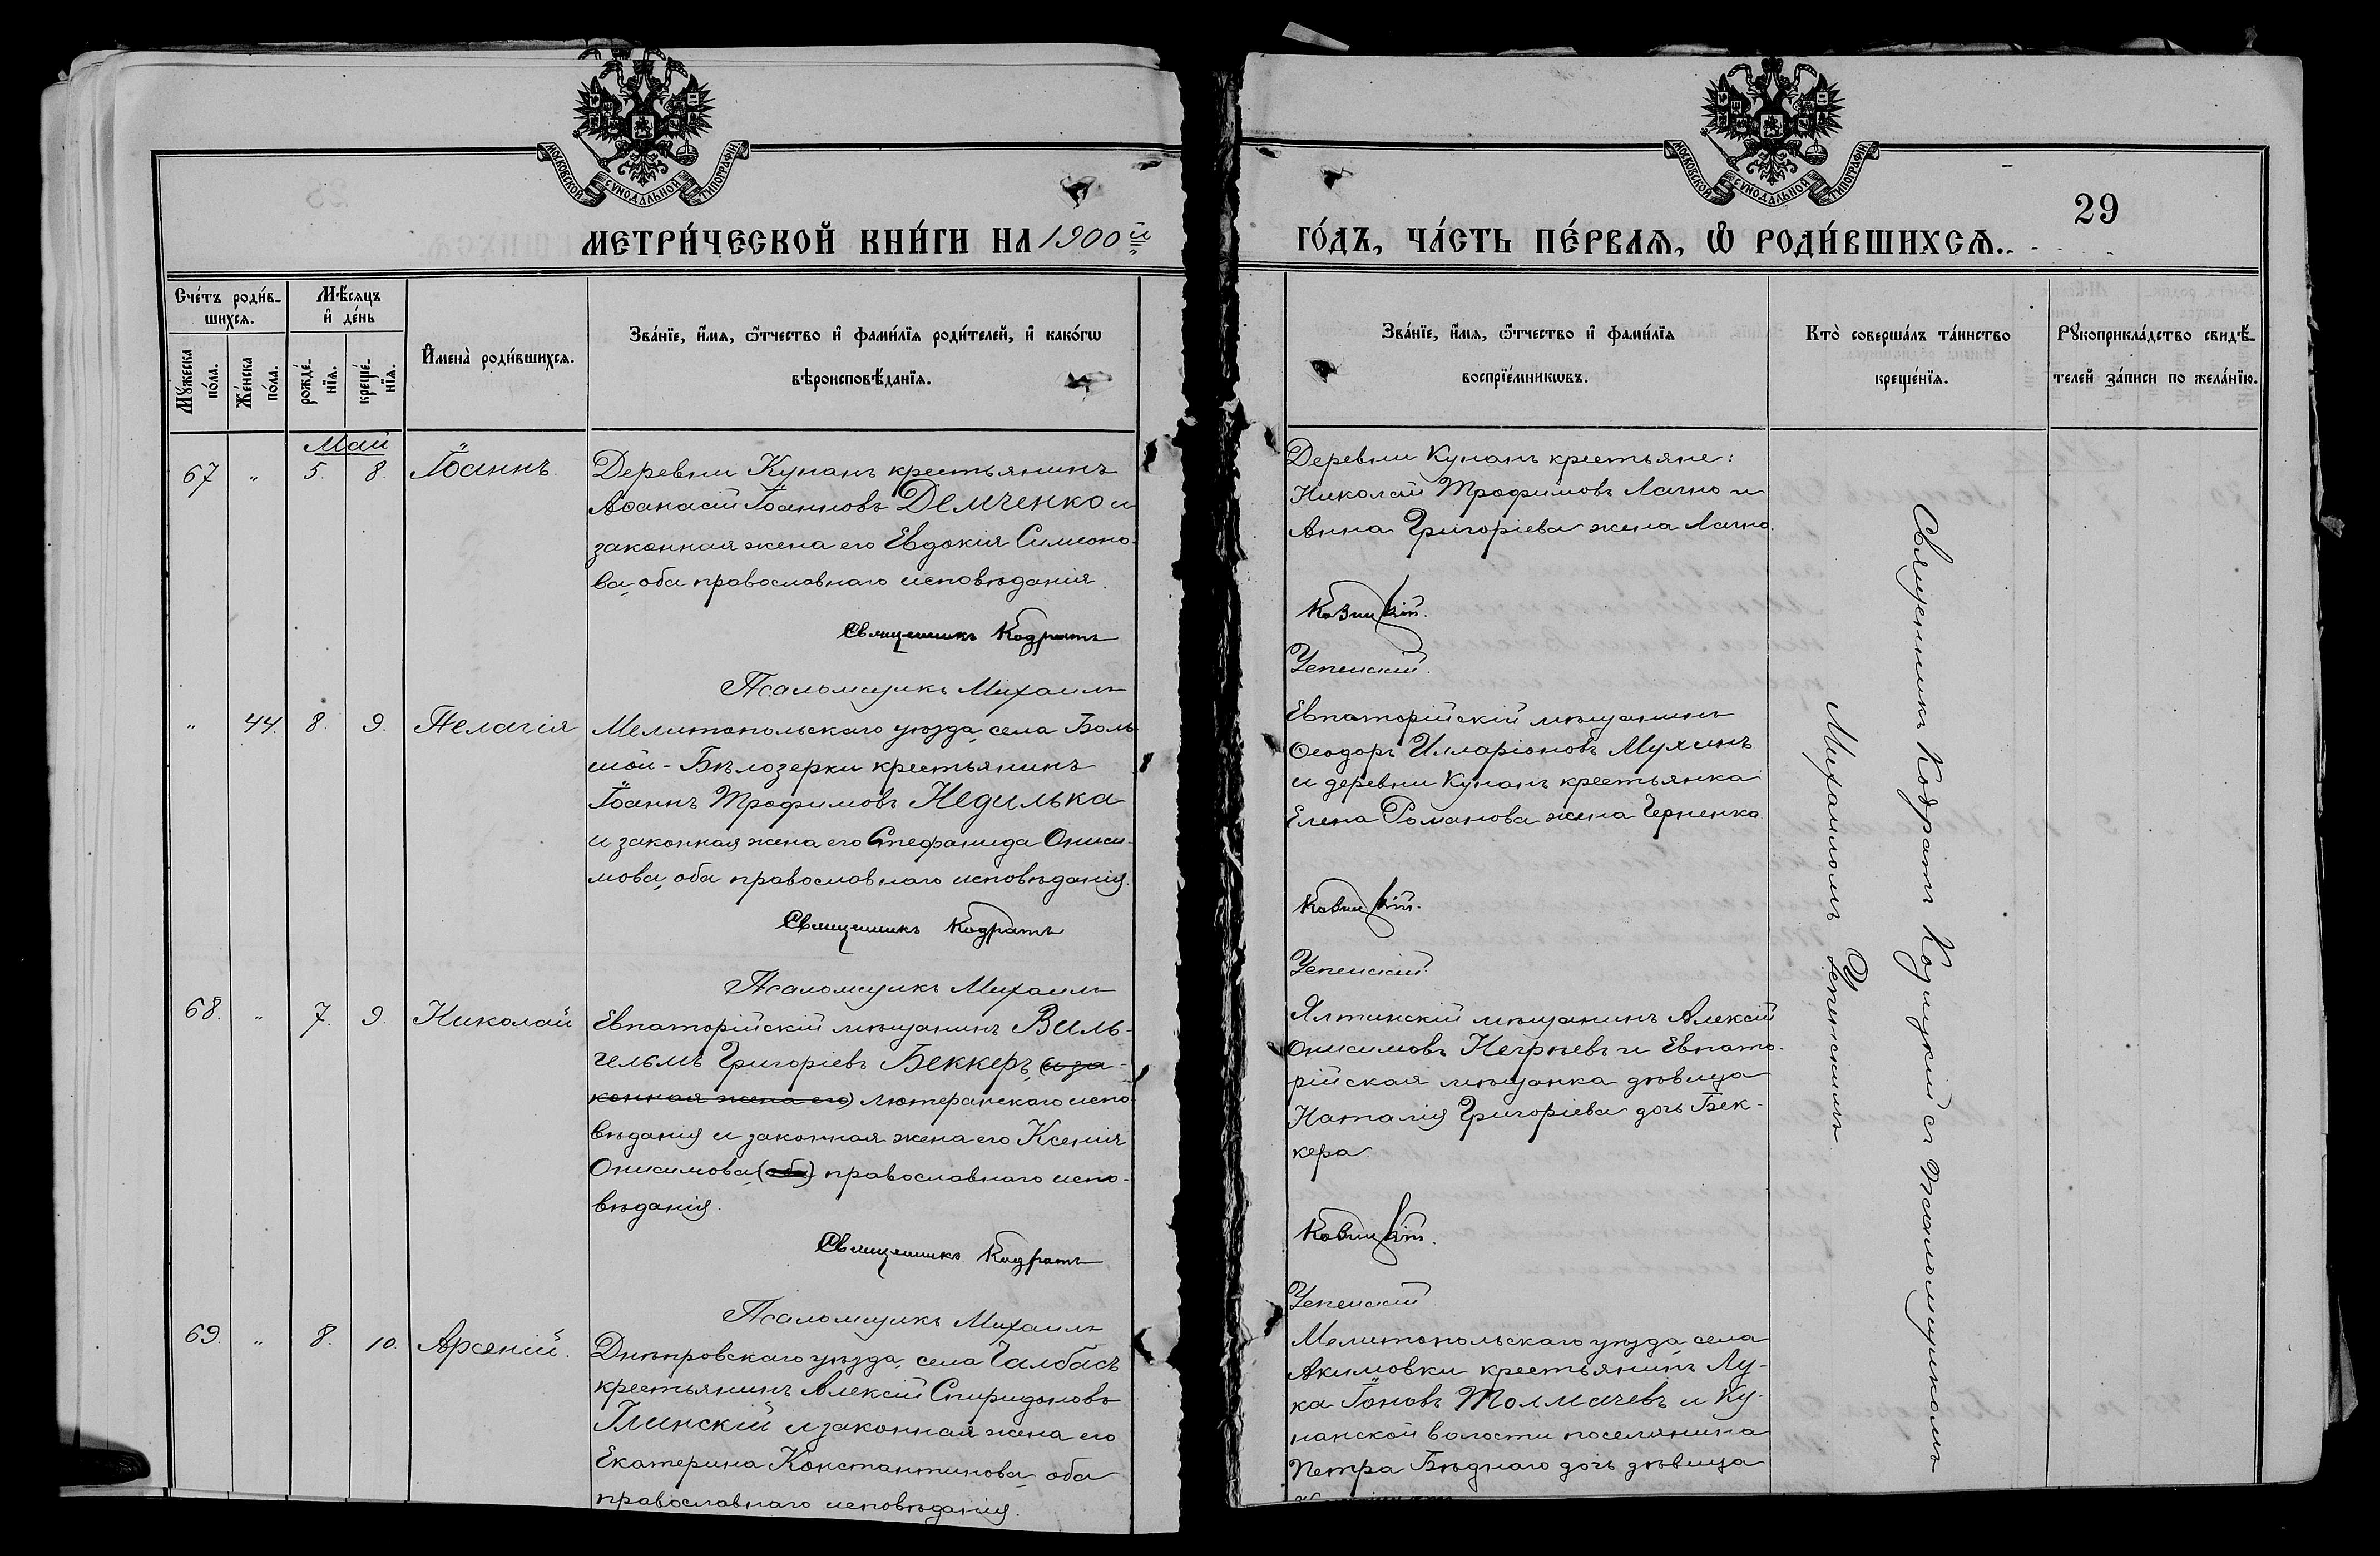 МОСКОВСКОЙ СѴНОДАЛЬНОЙ ТИПОГРАФІИ
МЕТРИ́ЧЕСКОЙ КНИ́ГИ НА 1900й
Сче́тъ роди́в-
шихсѧ.
Мѣ́сяцъ
и҆ де́нь
Мꙋ́жеска
по́ла.
Же́нска
по́ла.
рожде́-
нїѧ.
креще́-
нїѧ.
И҆мена̀ роди́вшихсѧ.
Зва́нїе, и҆́мѧ, ѻ҆́тчество и҆ фами́лїѧ роди́телей, и҆ како́гѡ
вѣроисповѣ́данїѧ.
Май
67 " 5. 8. Іоаннъ.
Деревни Кунанъ крестьянинъ
Аѳанасій Іоанновъ Демченко и
законная жена его Евдокія Симеоно-
ва, оба православнаго исповѣданія.
Священникъ Кодратъ
Псаломщикъ Михаилъ
" 44. 8. 9. Пелагія
Мелитопольскаго уѣзда, села Боль-
шой-Бѣлозерки крестьянинъ
Іоаннъ Трофимовъ Недилька
и законная жена его Стефанида Ониси-
мова, оба православнаго исповѣданія.
Священникъ Кодратъ
Псаломщикъ Михаилъ
68. " 7. 9. Николай
Евпаторійскій мѣщанинъ Виль-
гельмъ Григоріевъ Беккеръ, (и за-
конная жена его) лютеранскаго испо-
вѣданія и законная жена его Ксенія
Онисимова, (оба) православнаго испо-
вѣданія.
Священникъ Кодратъ
Псаломщикъ Михаилъ
69. " 8. 10. Арсеній.
Днѣпровскаго уѣзда, села Чалбасъ
крестьянинъ Алексій Спиридоновъ
Глинскій и законная жена его
Екатерина Константинова, оба
православнаго исповѣданія.
МОСКОВСКОЙ СѴНОДАЛЬНОЙ ТИПОГРАФІИ
29
ГО́ДЪ, ЧА́СТЬ ПЕ́РВАѦ, Ѡ҆ РОДИ́ВШИХСѦ.
Зва́нїе, и҆́мѧ, ѻ҆́тчество и҆ фами́лїѧ
воспрїе́мникѡвъ.
Кто̀ соверша́лъ та́инство
креще́нїѧ.
Рꙋкоприкла́дство свидѣ́-
телей за́писи по жела́нїю.
Деревни Кунанъ крестьяне:
Николай Трофимовъ Лачно и
Анна Григоріева жена Лачно.
Успенскій.
Евпаторійскій мѣщанинъ
Ѳеодоръ Илларіоновъ Мухинъ
и деревни Кунанъ крестьянка
Елена Романова жена Черненко.
Успенскій.
Ялтинскій мѣщанинъ Алексій
Онисимовъ Негрѣевъ и Евпато-
рійская мѣщанка дѣвица
Наталія Григоріева дочь Бек-
кера
Успенскій
Мелитопольскаго уѣзда, села
Акимовки крестьянинъ Лу-
ка Іоновъ Толмачевъ и Ку-
нанской волости поселянина
Петра Бѣднаго дочь дѣвица
Священникъ Кодратъ съ Псаломщикомъ
Михаиломъ Успенскимъ